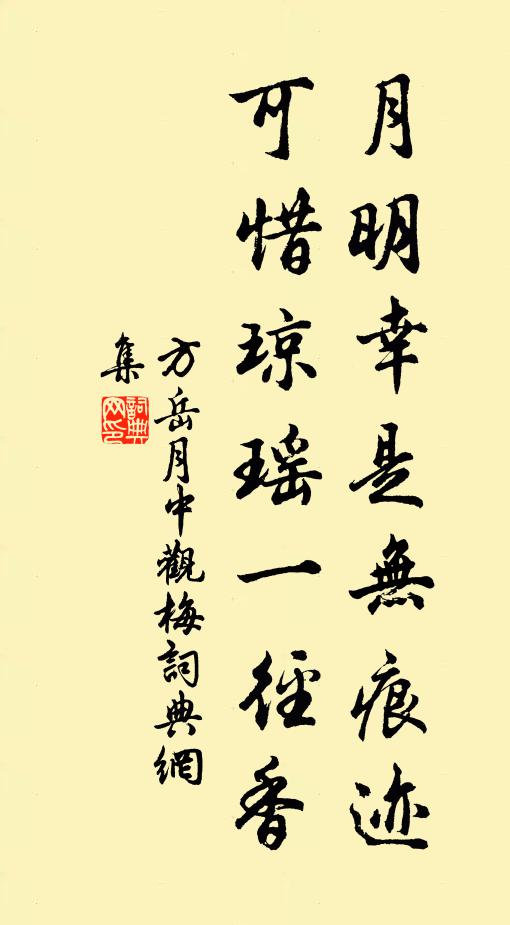 月明幸是無痕迹
可惜琼瑶一徑香
方岳月中觀梅詞典網
集
詞典
网印